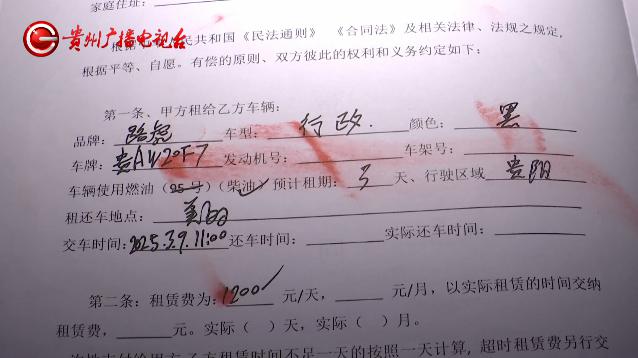 家庭住址：
贵州广播电视台
根据 民共和国《民法通则》 《合同法》及相关法律、法规之规定，
根据平等、自愿。有偿的原则、双方彼此的权利和义务约定如下：
第一条、甲方租给乙方车辆：
品牌：路虎 车型：行政. 颜色：黑
车牌：贵AW20F7 发动机号： 车架号：
车辆使用燃油（95号）（柴油）预计租期：3天、行驶区域 贵阳
租还车地点：
交车时间：2025.3.9.11:00 还车时间： 实际还车时间：
第二条：租赁费为：1200 元/天， 元/月，以实际租赁的时间交纳
租赁费， 元。实际（ ）天，实际（ ）月。
方租赁时间不足一天的按照一天计算，超时租赁费另行交